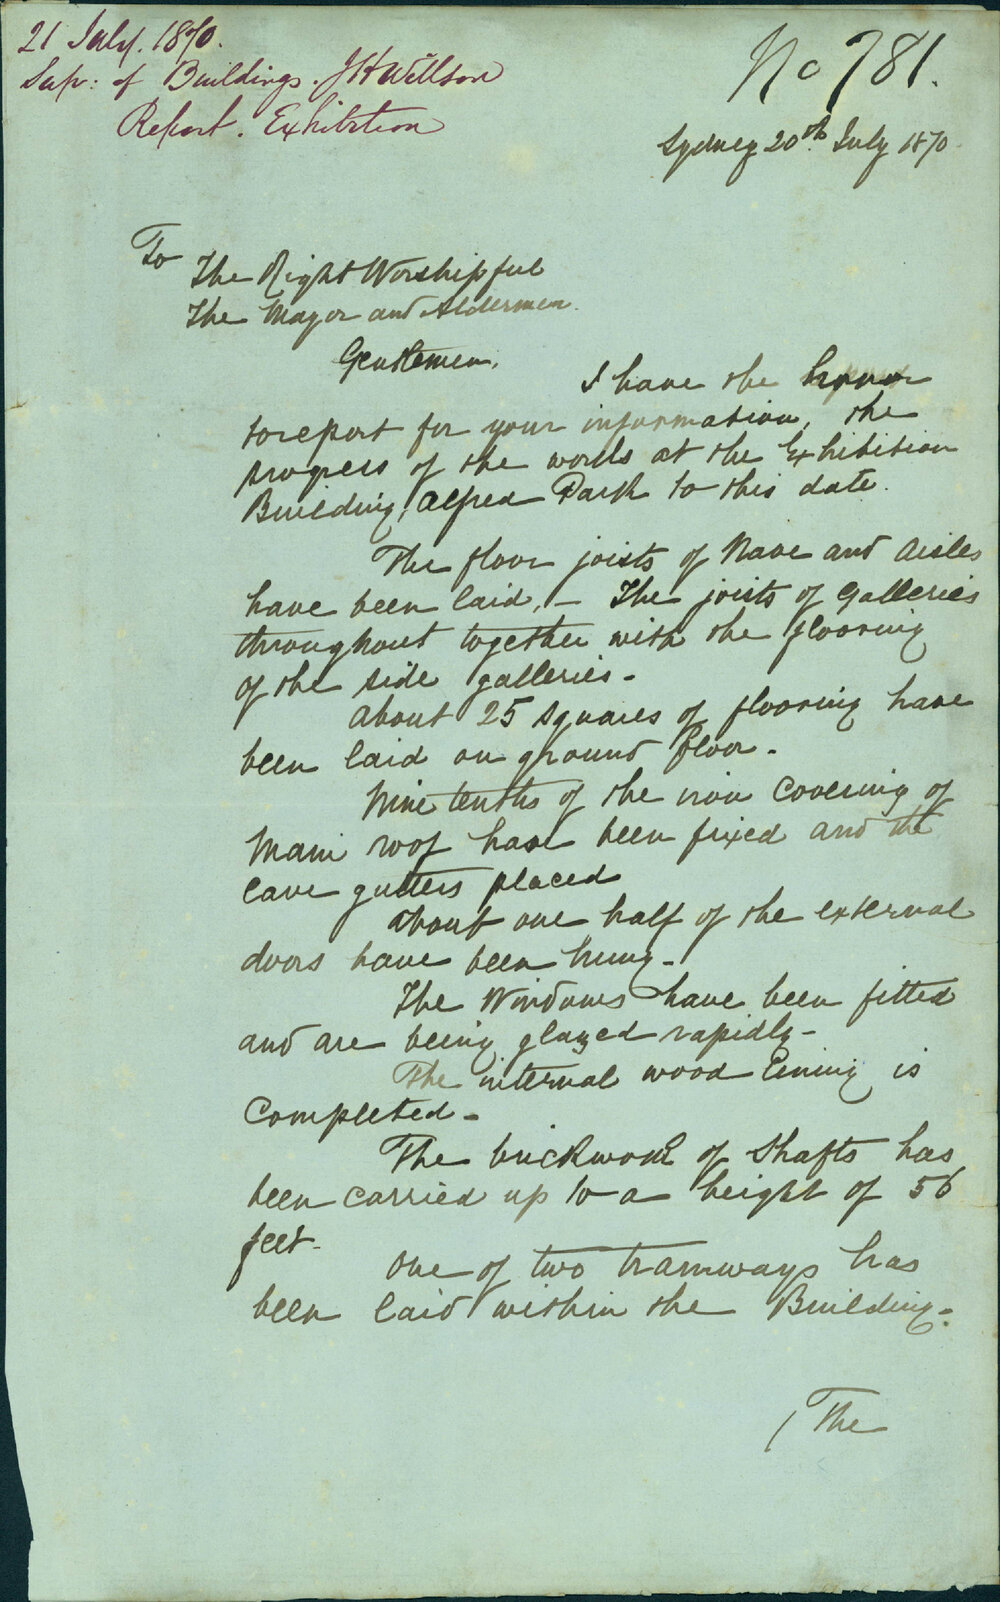 21 July. 1870.
Sup: of Buildings. J H Willson
Report. Exhibition
No 781.
Sydney 20th July 1870
To
The Right Worshipful
The Mayor and Aldermen.
Gentlemen,
I have the honor
to report for your information, the
progress of the works at the Exhibition
Building, Alfred Park to this date.
The floor joists of Nave and Aisles
have been laid, – The joists of Galleries
throughout together with the flooring
of the side galleries –
About 25 squares of flooring have
been laid on ground floor –
Nine tenths of the iron covering of
Main roof have been fixed and the
eave gutters placed
About one half of the external
doors have been hung –
The Windows have been fitted
and are being glazed rapidly –
The internal wood lining is
Completed –
The brickwork of Shafts has
been carried up to a height of 56
feet –
One of two tramways has
been laid within the Building –
/ The